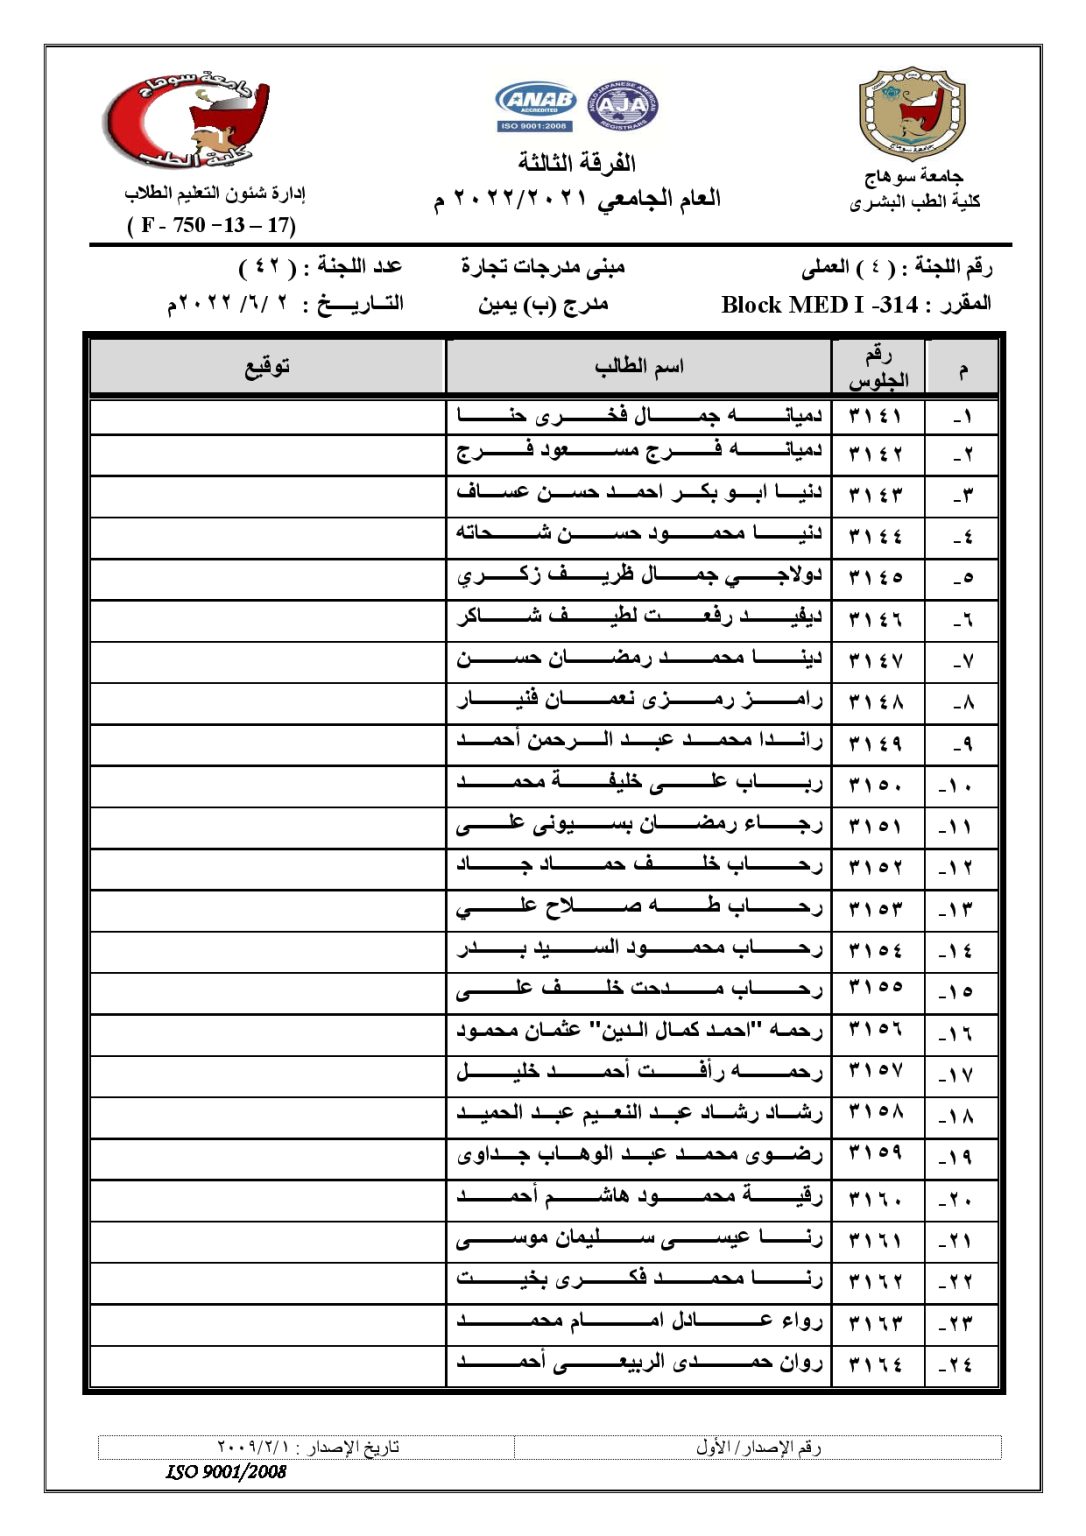 جامعة سوهاج
كلية الطب
إدارة شئون التعليم الطلاب
( F - 750 –13 – 17)
ANAB
ACCREDITED
ISO 9001:2008
ANGLO JAPANESE AMERICAN
AJA
REGISTRARS
الفرقة الثالثة
العام الجامعي ٢٠٢٢/٢٠٢١ م
جامعة سوهاج
جامعة سوهاج
كلية الطب البشرى
رقم اللجنة : ( ٤ ) العملى مبنى مدرجات تجارة عدد اللجنة : ( ٤٢ )
المقرر : Block MED I -314 مدرج (ب) يمين التــاريـــخ : ٢ /٦/ ٢٠٢٢م
م رقم الجلوس اسم الطالب توقيع
١- ٣١٤١ دميانه جمال فخرى حنا
٢- ٣١٤٢ دميانه فرج مسعود فرج
٣- ٣١٤٣ دنيا ابو بكر احمد حسن عساف
٤- ٣١٤٤ دنيا محمود حسن شحاته
٥- ٣١٤٥ دولاجي جمال ظريف زكري
٦- ٣١٤٦ ديفيد رفعت لطيف شاكر
٧- ٣١٤٧ دينا محمد رمضان حسن
٨- ٣١٤٨ رامز رمزى نعمان فنيار
٩- ٣١٤٩ راندا محمد عبد الرحمن أحمد
١٠- ٣١٥٠ رباب على خليفة محمد
١١- ٣١٥١ رجاء رمضان بسيونى على
١٢- ٣١٥٢ رحاب خلف حماد جاد
١٣- ٣١٥٣ رحاب طه صلاح علي
١٤- ٣١٥٤ رحاب محمود السيد بدر
١٥- ٣١٥٥ رحاب مدحت خلف على
١٦- ٣١٥٦ رحمه "احمد كمال الدين" عثمان محمود
١٧- ٣١٥٧ رحمه رأفت أحمد خليل
١٨- ٣١٥٨ رشاد رشاد عبد النعيم عبد الحميد
١٩- ٣١٥٩ رضوى محمد عبد الوهاب جداوى
٢٠- ٣١٦٠ رقية محمود هاشم أحمد
٢١- ٣١٦١ رنا عيسى سليمان موسى
٢٢- ٣١٦٢ رنا محمد فكرى بخيت
٢٣- ٣١٦٣ رواء عادل امام محمد
٢٤- ٣١٦٤ روان حمدى الربيعى أحمد
رقم الإصدار/ الأول تاريخ الإصدار : ٢٠٠٩/٢/١
ISO 9001/2008